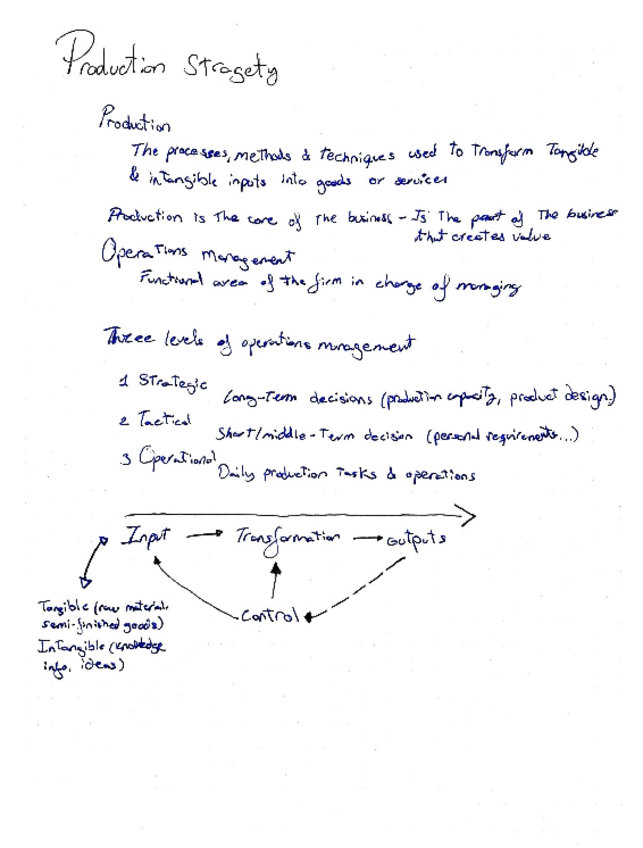 Production Stragety
Production
The processes, methods & techniques used to Transform Tangible
& intangible inputs into goods or services
Production is The core of The business - Is The part of The business
that creates value
Operations management
Functional area of the firm in charge of managing
Three levels of operations management
1 Strategic
Long-Term decisions (production capacity, product design.)
2 Tactical
Short/middle-Term decision (personal requirements...)
3 Operational
Daily production Tasks & operations
Input Transformation Outputs
Control
Tangible (raw material,
semi-finished goods)
InTangible (knowledge
info, ideas)